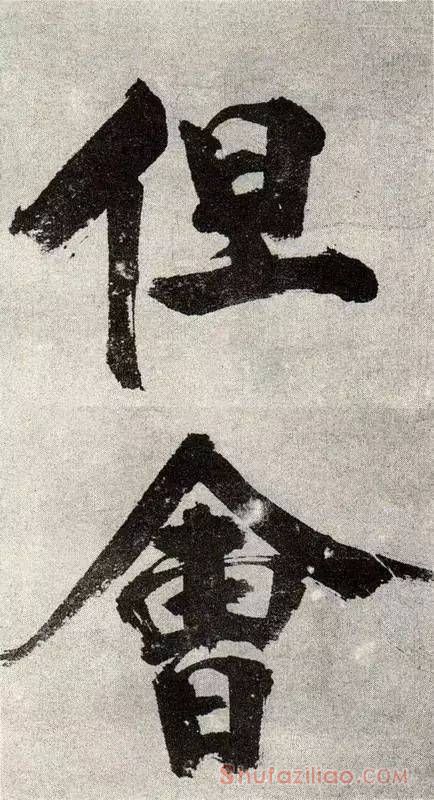 但
會
Shufaziliao.COM